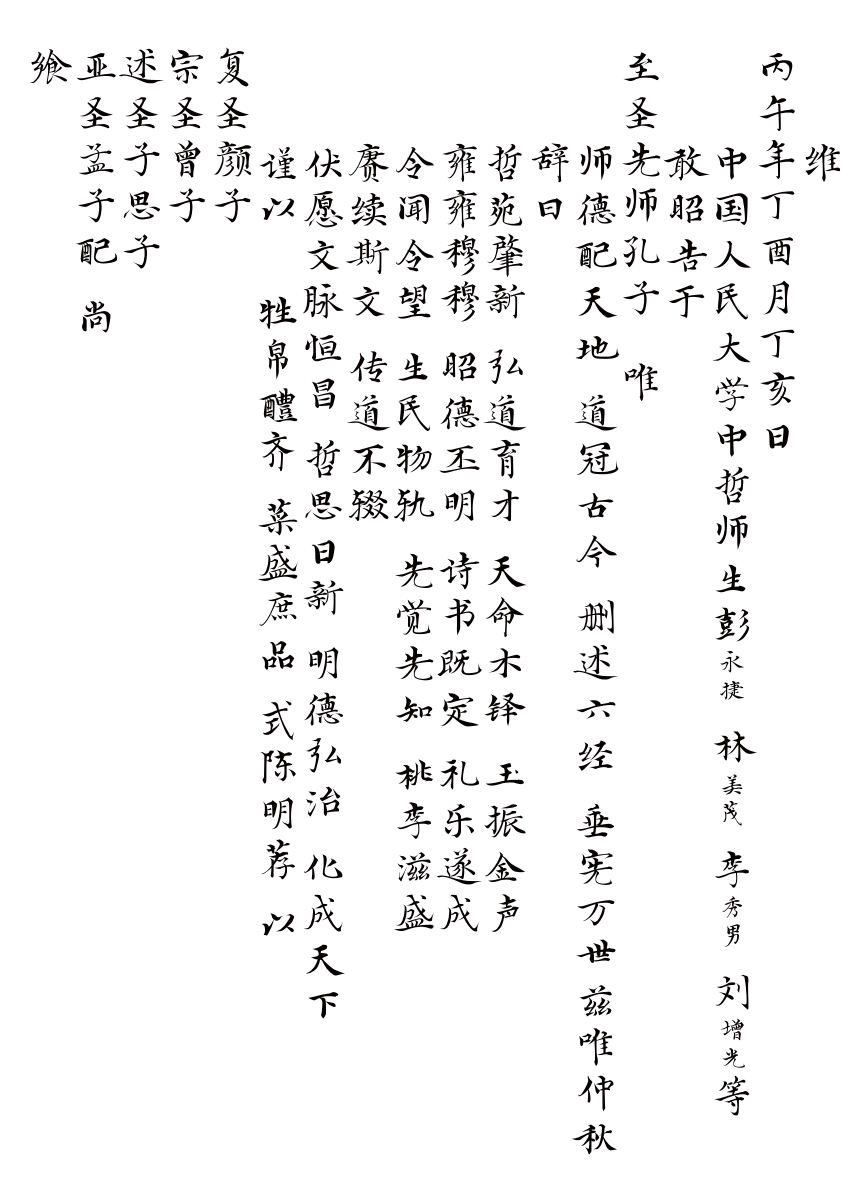 维
丙午年丁酉月丁亥日
中国人民大学中哲师生彭永捷 林美茂 李秀男 刘增光等
敢昭告于
至圣先师孔子 唯
师德配天地 道冠古今 删述六经 垂宪万世 兹唯仲秋
辞曰
哲苑肇新 弘道育才 天命木铎 玉振金声
雍雍穆穆 昭德丕明 诗书既定 礼乐遂成
令闻令望 生民物轨 先觉先知 桃李滋盛
赓续斯文 传道不辍
伏愿文脉恒昌 哲思日新 明德弘治 化成天下
谨以 牲帛醴齐 粢盛庶品 式陈明荐 以
复圣颜子
宗圣曾子
述圣子思子
亚圣孟子配 尚
飨